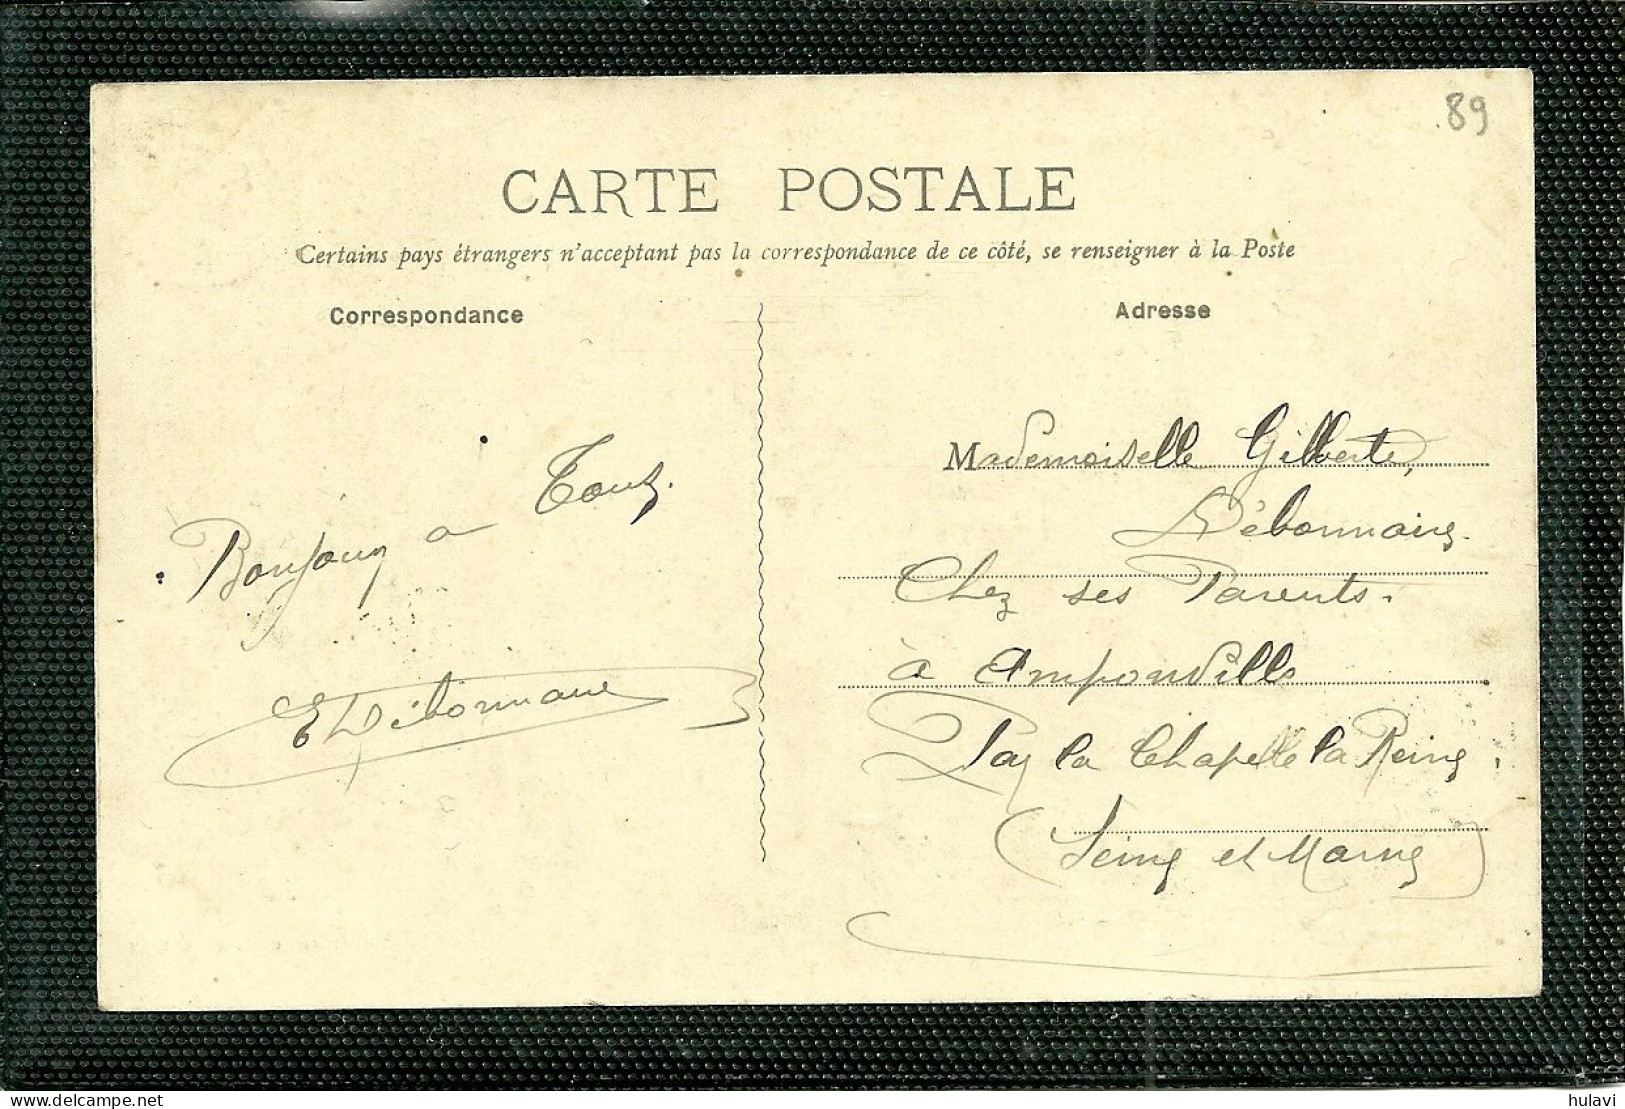 89
CARTE POSTALE
Certains pays étrangers n'acceptant pas la correspondance de ce côté, se renseigner à la Poste
Correspondance
Adresse
Bonjour a Tous.
EDébonnaire
Mademoiselle Gilberte,
Débonnaire.
Chez ses Parents.
à Amponville
Par la Chapelle la Reine,
(Seine et Marne)
delcampe.net
hulavi